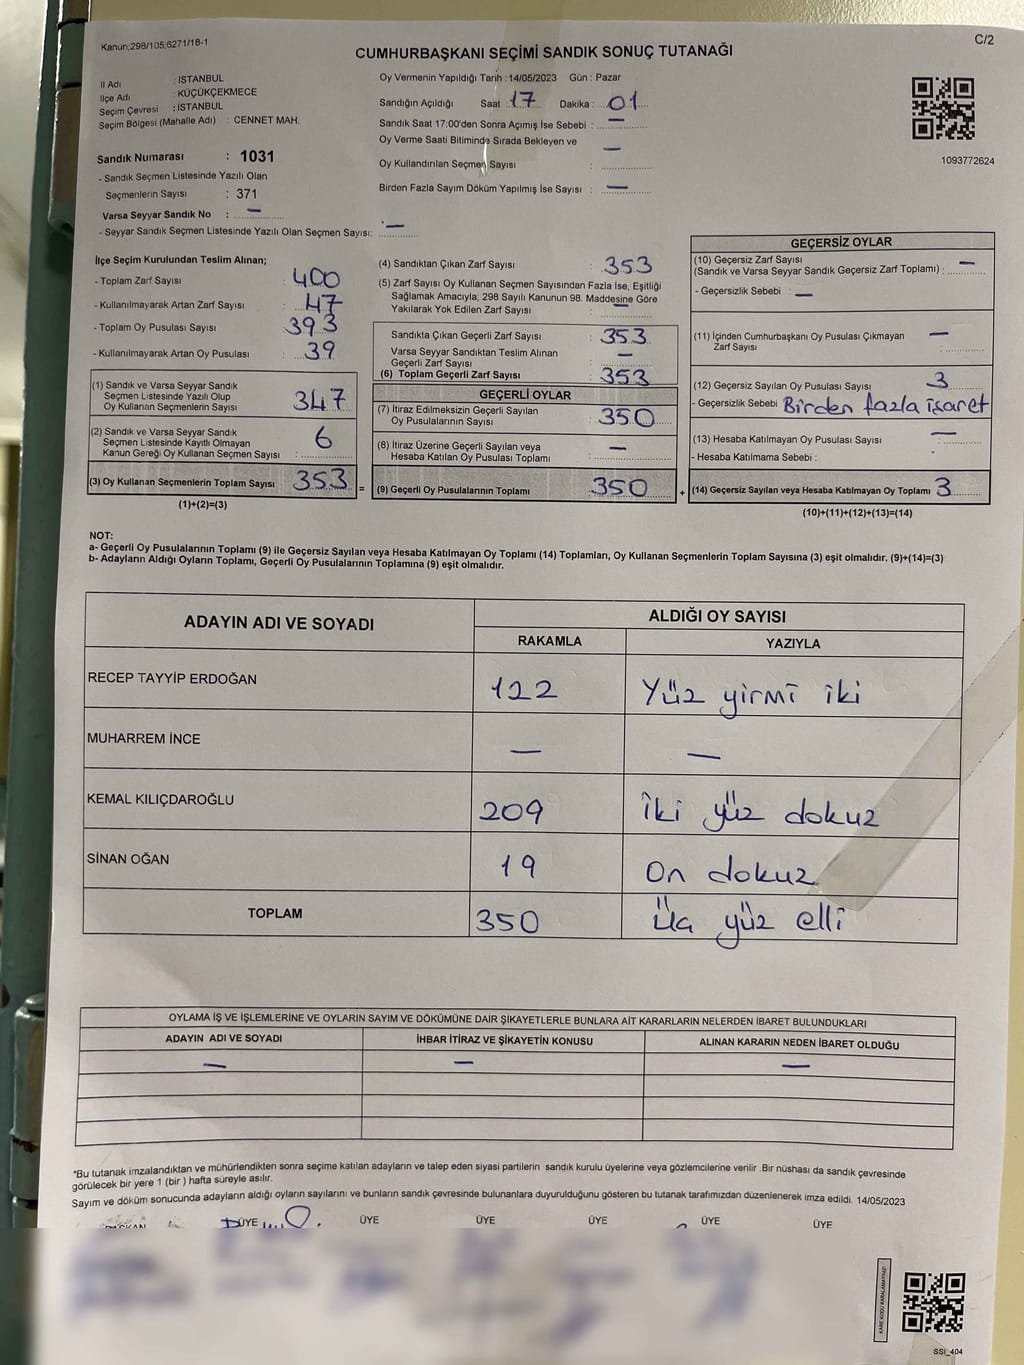 Kanun;298/105;6271/18-1
C/2
CUMHURBAŞKANI SEÇİMİ SANDIK SONUÇ TUTANAĞI
İl Adı : İSTANBUL
İlçe Adı : KÜÇÜKÇEKMECE
Seçim Çevresi : İSTANBUL
Seçim Bölgesi (Mahalle Adı) : CENNET MAH.
Sandık Numarası : 1031
- Sandık Seçmen Listesinde Yazılı Olan
Seçmenlerin Sayısı : 371
Varsa Seyyar Sandık No : —
- Seyyar Sandık Seçmen Listesinde Yazılı Olan Seçmen Sayısı: —
Oy Vermenin Yapıldığı Tarih : 14/05/2023 Gün : Pazar
Sandığın Açıldığı Saat : 17 Dakika : 01
Sandık Saat 17:00'den Sonra Açımış İse Sebebi : —
Oy Verme Saati Bitiminde Sırada Bekleyen ve —
Oy Kullandırılan Seçmen Sayısı :
Birden Fazla Sayım Döküm Yapılmış İse Sayısı : —
1093772624
İlçe Seçim Kurulundan Teslim Alınan;
- Toplam Zarf Sayısı : 400
- Kullanılmayarak Artan Zarf Sayısı : 47
- Toplam Oy Pusulası Sayısı : 393
- Kullanılmayarak Artan Oy Pusulası : 39
(1) Sandık ve Varsa Seyyar Sandık
Seçmen Listesinde Yazılı Olup
Oy Kullanan Seçmenlerin Sayısı : 347
(2) Sandık ve Varsa Seyyar Sandık
Seçmen Listesinde Kayıtlı Olmayan
Kanun Gereği Oy Kullanan Seçmen Sayısı : 6
(3) Oy Kullanan Seçmenlerin Toplam Sayısı : 353 =
(1)+(2)=(3)
(4) Sandıktan Çıkan Zarf Sayısı : 353
(5) Zarf Sayısı Oy Kullanan Seçmen Sayısından Fazla İse, Eşitliği
Sağlamak Amacıyla; 298 Sayılı Kanunun 98. Maddesine Göre
Yakılarak Yok Edilen Zarf Sayısı : —
Sandıkta Çıkan Geçerli Zarf Sayısı : 353
Varsa Seyyar Sandıktan Teslim Alınan
Geçerli Zarf Sayısı : —
(6) Toplam Geçerli Zarf Sayısı : 353
GEÇERLİ OYLAR
(7) İtiraz Edilmeksizin Geçerli Sayılan
Oy Pusulalarının Sayısı : 350
(8) İtiraz Üzerine Geçerli Sayılan veya
Hesaba Katılan Oy Pusulası Toplamı : —
(9) Geçerli Oy Pusulalarının Toplamı : 350 +
GEÇERSİZ OYLAR
(10) Geçersiz Zarf Sayısı
(Sandık ve Varsa Seyyar Sandık Geçersiz Zarf Toplamı) : —
- Geçersizlik Sebebi : —
(11) İçinden Cumhurbaşkanı Oy Pusulası Çıkmayan
Zarf Sayısı : —
(12) Geçersiz Sayılan Oy Pusulası Sayısı : 3
- Geçersizlik Sebebi Birden fazla işaret
(13) Hesaba Katılmayan Oy Pusulası Sayısı : —
- Hesaba Katılmama Sebebi :
(14) Geçersiz Sayılan veya Hesaba Katılmayan Oy Toplamı : 3
(10)+(11)+(12)+(13)=(14)
NOT:
a- Geçerli Oy Pusulalarının Toplamı (9) ile Geçersiz Sayılan veya Hesaba Katılmayan Oy Toplamı (14) Toplamları, Oy Kullanan Seçmenlerin Toplam Sayısına (3) eşit olmalıdır. (9)+(14)=(3)
b- Adayların Aldığı Oyların Toplamı, Geçerli Oy Pusulalarının Toplamına (9) eşit olmalıdır.
ADAYIN ADI VE SOYADI ALDIĞI OY SAYISI
RAKAMLA YAZIYLA
RECEP TAYYİP ERDOĞAN 122 Yüz yirmi iki
MUHARREM İNCE — —
KEMAL KILIÇDAROĞLU 209 İki yüz dokuz
SİNAN OĞAN 19 On dokuz
TOPLAM 350 Üç yüz elli
OYLAMA İŞ VE İŞLEMLERİNE VE OYLARIN SAYIM VE DÖKÜMÜNE DAİR ŞİKAYETLERLE BUNLARA AİT KARARLARIN NELERDEN İBARET BULUNDUKLARI
ADAYIN ADI VE SOYADI İHBAR İTİRAZ VE ŞİKAYETİN KONUSU ALINAN KARARIN NEDEN İBARET OLDUĞU
— — —
*Bu tutanak imzalandıktan ve mühürlendikten sonra seçime katılan adayların ve talep eden siyasi partilerin sandık kurulu üyelerine veya gözlemcilerine verilir .Bir nüshası da sandık çevresinde
görülecek bir yere 1 (bir ) hafta süreyle asılır.
Sayım ve döküm sonucunda adayların aldığı oyların sayılarını ve bunların sandık çevresinde bulunanlara duyurulduğunu gösteren bu tutanak tarafımızdan düzenlenerek imza edildi. 14/05/2023
ÜYE ÜYE ÜYE ÜYE ÜYE ÜYE
KARE KODU KARALAMAYINIZ!
SSI_404